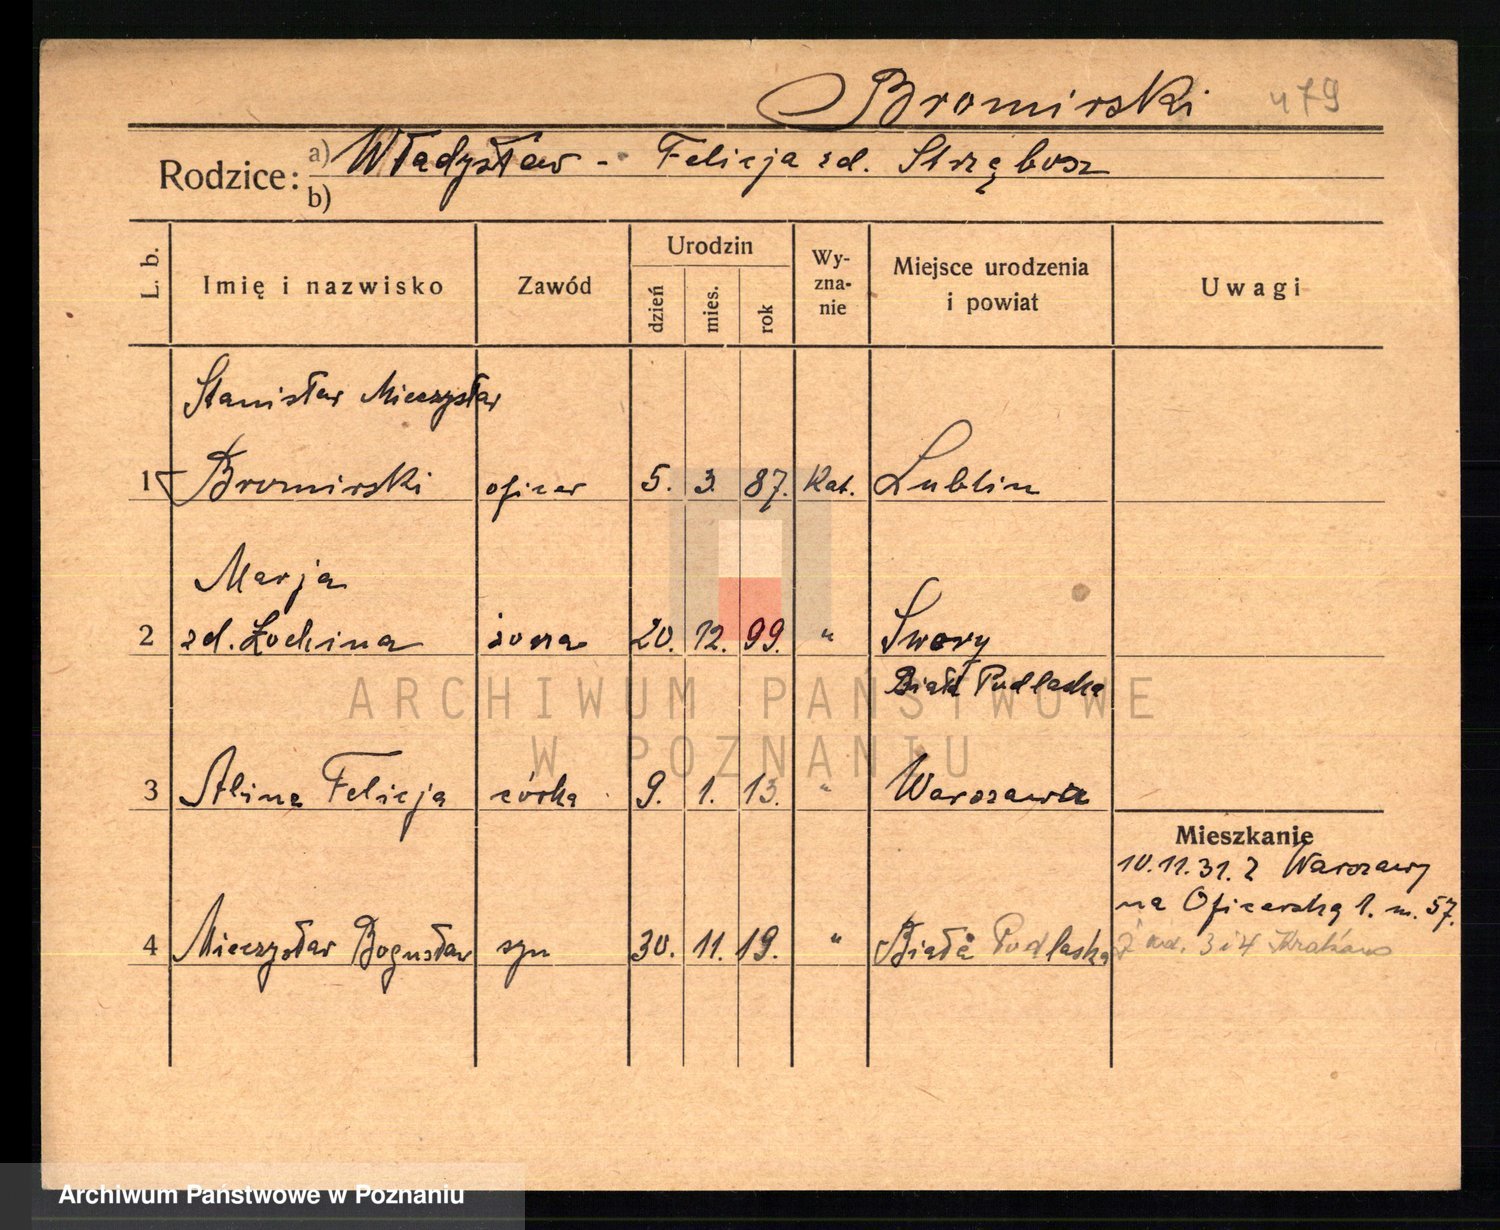 Bromirski 479
Rodzice: a) Władysław - Felicja zd. Strzębosz
b)
L. b. Imię i nazwisko Zawód Urodzin dzień mies. rok Wyzna-nie Miejsce urodzenia i powiat Uwagi
Stanisław Mieczysław
1 Bromirski oficer 5. 3. 87. Kat. Lublin
Marja
2 zd. Żochina żona 20. 12. 99. " Swory
Biała Podlaska
ARCHIWUM PAŃSTWOWE
W POZNANIU
3 Alina Felicja córka 9. 1. 13. " Warszawa
Mieszkanie
10.11.31. z Warszawy
na Oficerską 1. m. 57.
4 Mieczysław Bogusław syn 30. 11. 19. " Biała Podlaska
3 i 4 Kraków
Archiwum Państwowe w Poznaniu